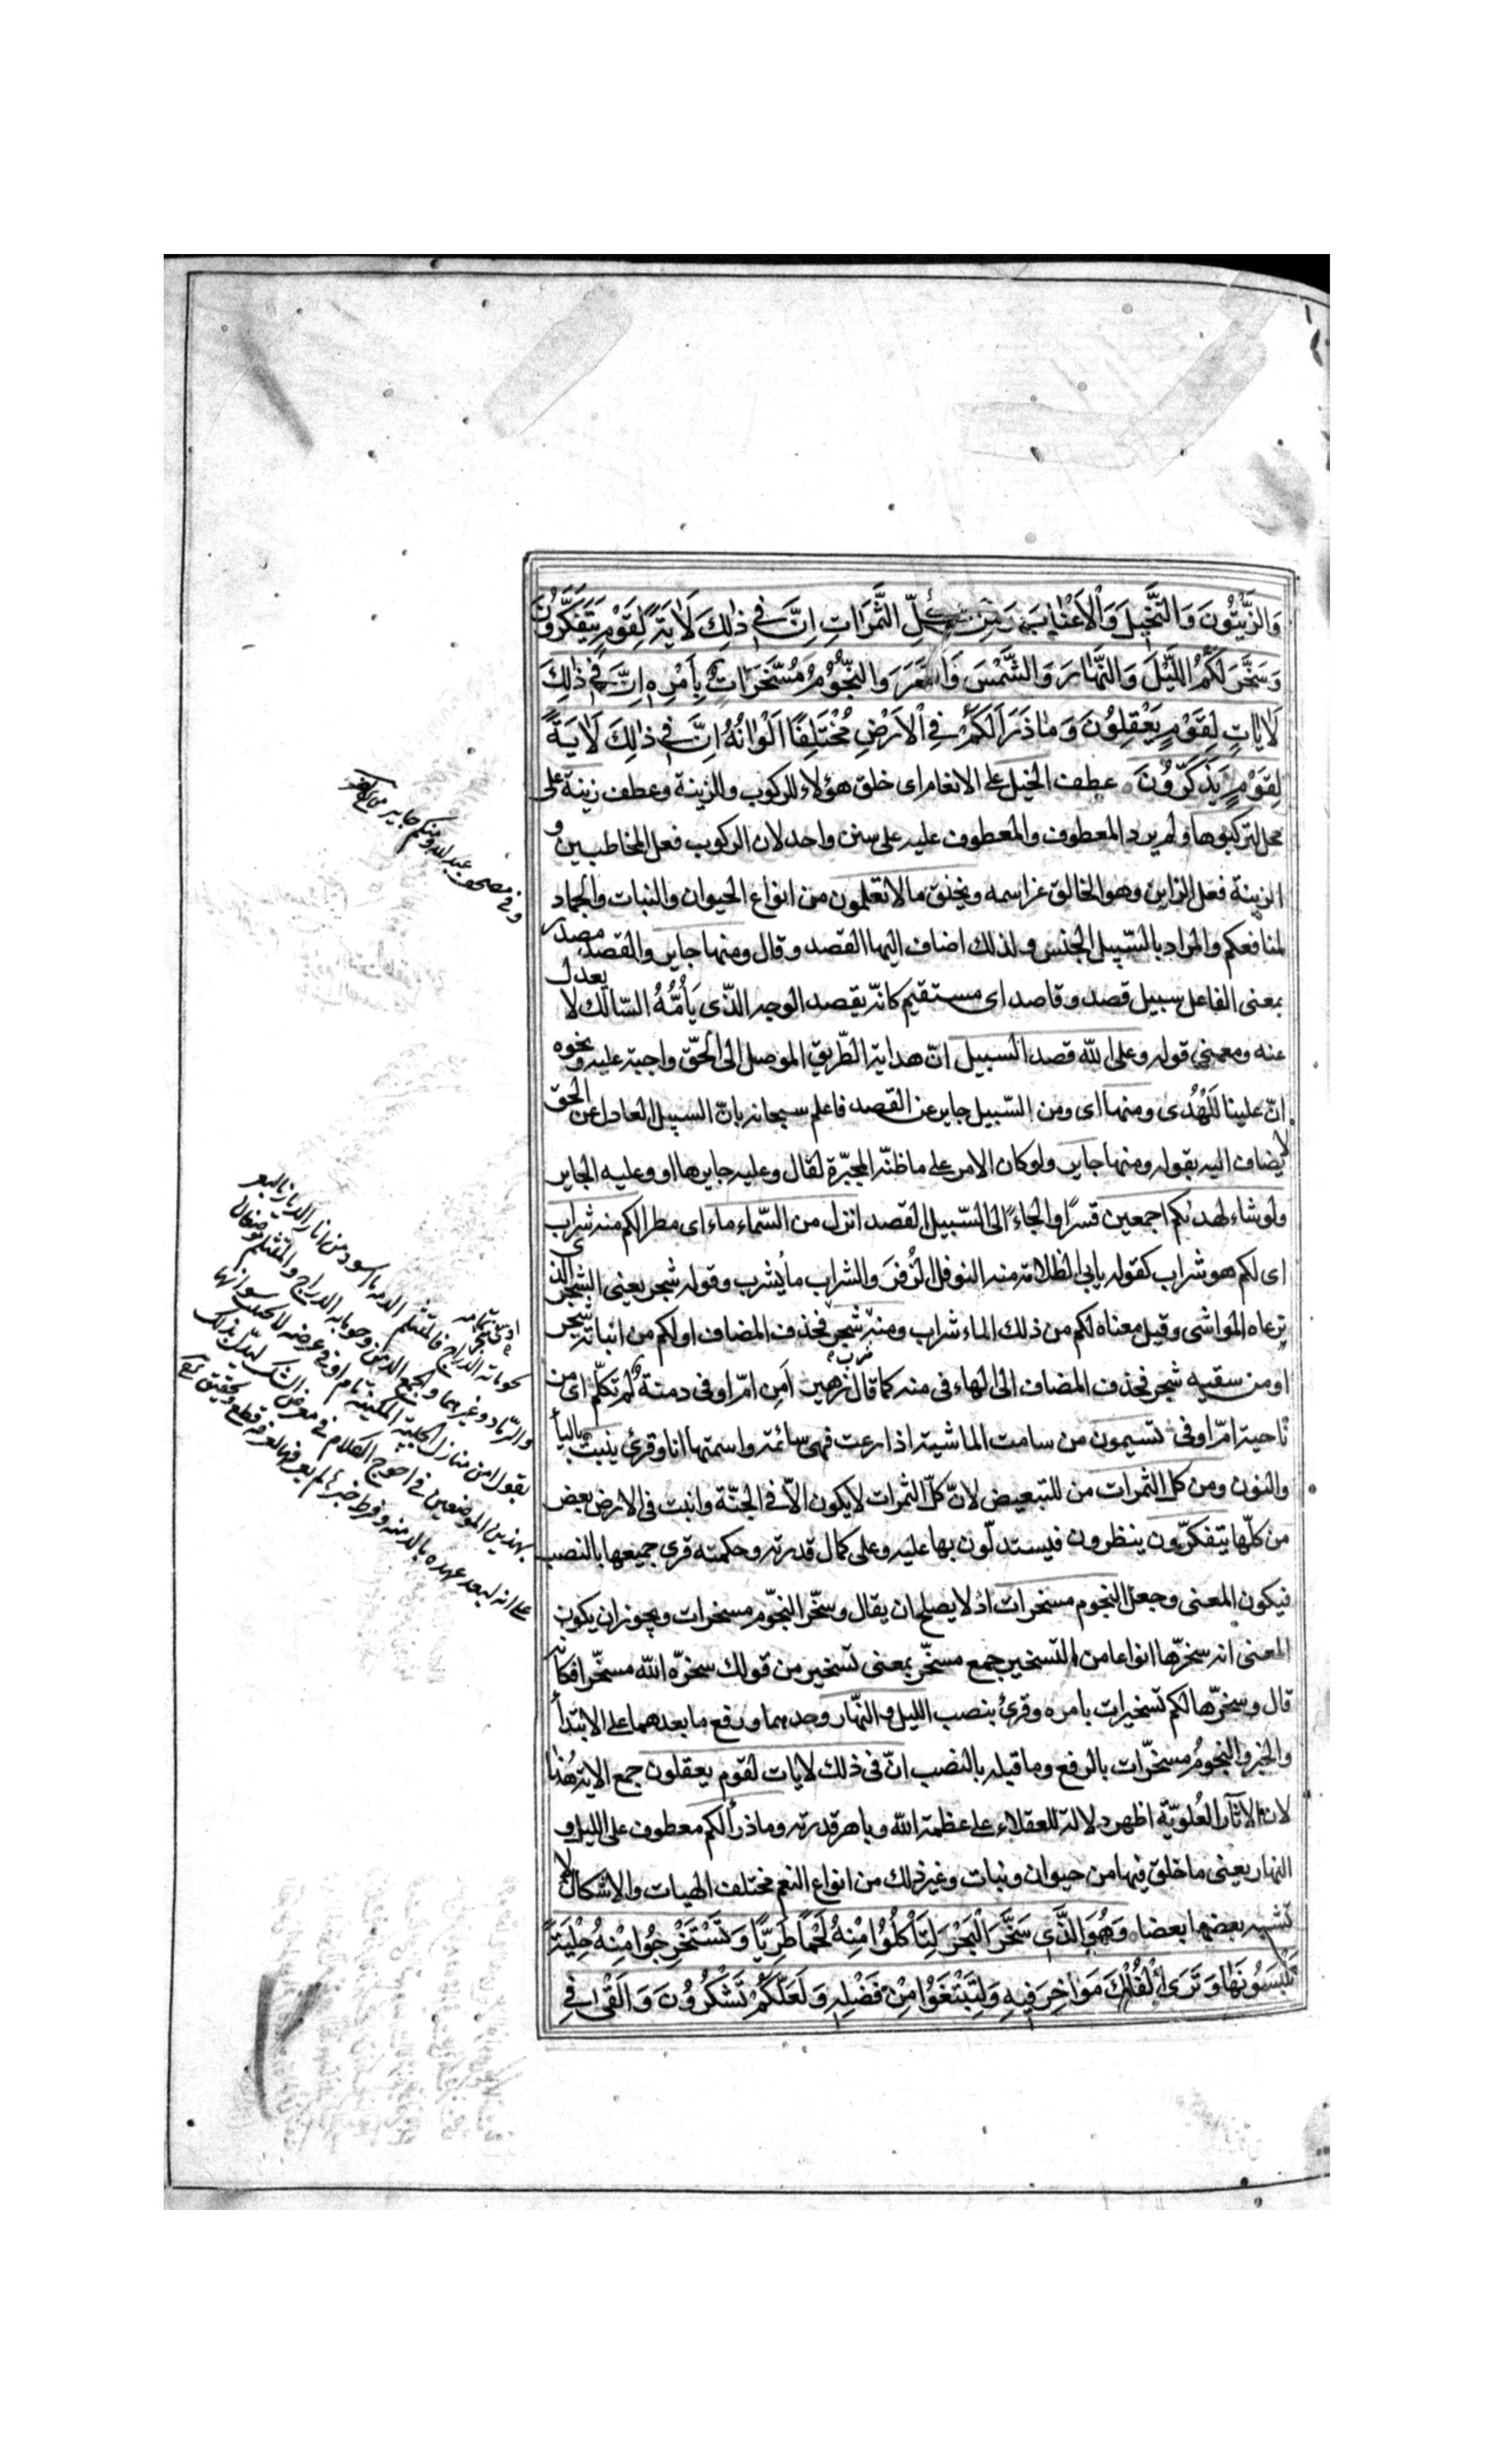 وَالزَّيْتُونَ وَالنَّخِيلَ وَالْاَعْنَابَ وَمِنْ كُلِّ الثَّمَرَاتِ اِنَّ فِي ذٰلِكَ لَاٰيَةً لِقَوْمٍ يَتَفَكَّرُونَ
وَسَخَّرَ لَكُمُ اللَّيْلَ وَالنَّهَارَ وَالشَّمْسَ وَالْقَمَرَ وَالنُّجُومُ مُسَخَّرَاتٌ بِاَمْرِهِ اِنَّ فِي ذٰلِكَ
لَاٰيَاتٍ لِقَوْمٍ يَعْقِلُونَ وَمَا ذَرَاَ لَكُمْ فِي الْاَرْضِ مُخْتَلِفًا اَلْوَانُهُ اِنَّ فِي ذٰلِكَ لَاٰيَةً
لِقَوْمٍ يَذَّكَّرُونَ عطف الخيل على الانعام اى خلق هؤلاء للركوب وللزينة وعطف زينة على
محل لتركبوها ولم يرد المعطوف والمعطوف عليه على سنن واحد لان الركوب فعل المخاطبين و
الزينة فعل الزاين وهو الخالق عز اسمه ويخلق ما لا تعلمون من انواع الحيوان والنبات والجماد
لمنافعكم والمراد بالسّبيل الجنس ولذلك اضاف اليها القصد وقال ومنها جاير والقصد مصدر
بمعنى الفاعل سبيل قصد وقاصد اى مستقيم كانّه يقصد الوجه الّذى يَأُمُّهُ السّالك لا يعدل
عنه ومعنى قوله وعلى الله قصد السبيل انّ هداية الطّريق الموصل الى الحقّ واجبة عليه ونحوه
انّ علينا لَلْهُدى ومنها اى ومن السّبيل جاير عن القصد فاعلم سبحانه بانّ السبيل العادل عن الحق
لا يضاف اليه بقوله ومنها جاير ولو كان الامر على ما ظنّه المجبّرة لقال وعليه جايرها او وعليه الجاير
ولو شاء لهديكم اجمعين قسرًا والجاءً الى السّبيل القصد انزل من السّماء ماء اى مطرا لكم منه شراب
اى لكم هو شراب كقوله يابى الظلامة منه النوفل الزُفَر والشراب ما يُشرب وقوله شجر يعنى الشجر الذى
ترعاه المواشى وقيل معناه لكم من ذلك الماء شراب ومنه شجر فحذف المضاف او لكم من انباته شجر
او من سقيه شجر فحذف المضاف الى الهاء فى منه كما قال زهير اَمِن امّ اوفى دمنة لم تكلّم اى من
ناحية امّ اوفى تسيمون من سامت الماشية اذا رعت فهى سائمة واسمتها انا وقرئ ينبت بالياء
والنون ومن كل الثمرات من للتبعيض لانّ كلّ الثمرات لا يكون الّا فى الجنّة وانبت فى الارض بعض
من كلّها يتفكرّون ينظرون فيستدلّون بها عليه وعلى كمال قدرته وحكمته قرى جميعها بالنصب
فيكون المعنى وجعل النجوم مسخرات اذ لا يصلح ان يقال وسخّر النجّوم مسخرات ويجوز ان يكون
المعنى انه سخرّها انواعا من التسخير جمع مسخّر بمعنى تسخير من قولك سخرّه الله مسخّرا فكانّه
قال وسخرّها لكم تسخيرات بامره وقرئ بنصب الليل والنّهار وحدهما ورفع ما بعدهما على الابتدا
والخبر والنجومُ مسخرّات بالرفع وما قبله بالنصب انّ فى ذلك لايات لقوم يعقلون جمع الاية هٰهنا
لان الاثار العُلويّة اظهر دلالة للعقلاء على عظمة الله وباهر قدرته وما ذرأ لكم معطوف على الليل و
النهار يعنى ما خلق فيها من حيوان ونبات وغير ذلك من انواع النعم مختلف الهيات والاشكال لا
تشبه بعضها بعضا وَهُوَ الَّذِى سَخَّرَ الْبَحْرَ لِتَأْكُلُوا مِنْهُ لَحْمًا طَرِيًّا وَتَسْتَخْرِجُوا مِنْهُ حِلْيَةً
تَلْبَسُونَهَا وَتَرَى الْفُلْكَ مَوَاخِرَ فِيهِ وَلِتَبْتَغُوا مِنْ فَضْلِهِ وَلَعَلَّكُمْ تَشْكُرُونَ وَاَلْقٰى فِي
وفى مصحف عبد الله ومنكم جاير
بحومانة الدراج فالمتثلم الدمنة ما اسود من اثار الدار بالبعر
والرماد وغيرهما والجمع الدمن وحومانة الدراج والمتثلم موضعان
يقول امن منازل الحبيبة المكنية بام اوفى دمنة لا تجيب سؤالها
بهذين الموضعين اخرج الكلام فى معرض الشك ليدل بذلك
على انه لبعد عهده بالدمنة وفرط تغيرها لم يعرفها معرفة قطع وتحقيق